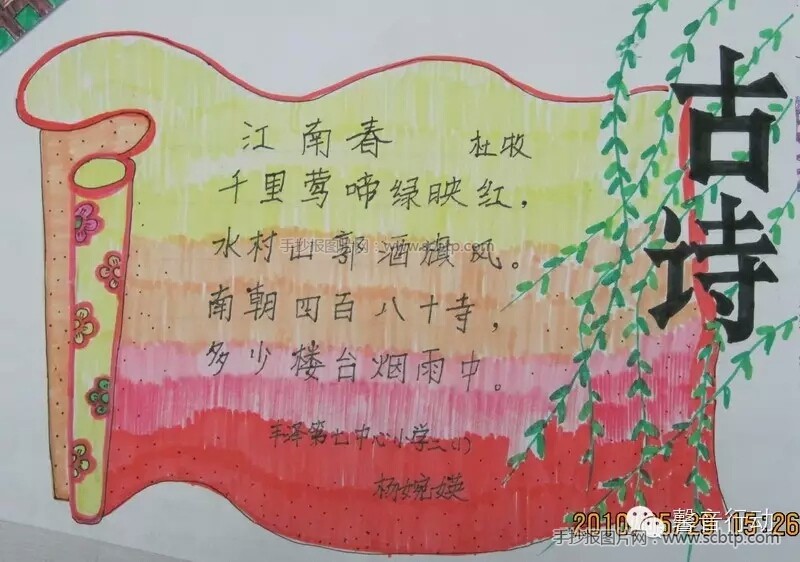 古诗
江南春 杜牧
千里莺啼绿映红，
水村山郭酒旗风。
南朝四百八十寺，
多少楼台烟雨中。
丰泽第七中心小学三(1)
杨婉媖
手抄报图片网：www.scbtp.com
馨音行动
2010.5.21 15:26
手抄报图片网：www.scbtp.com